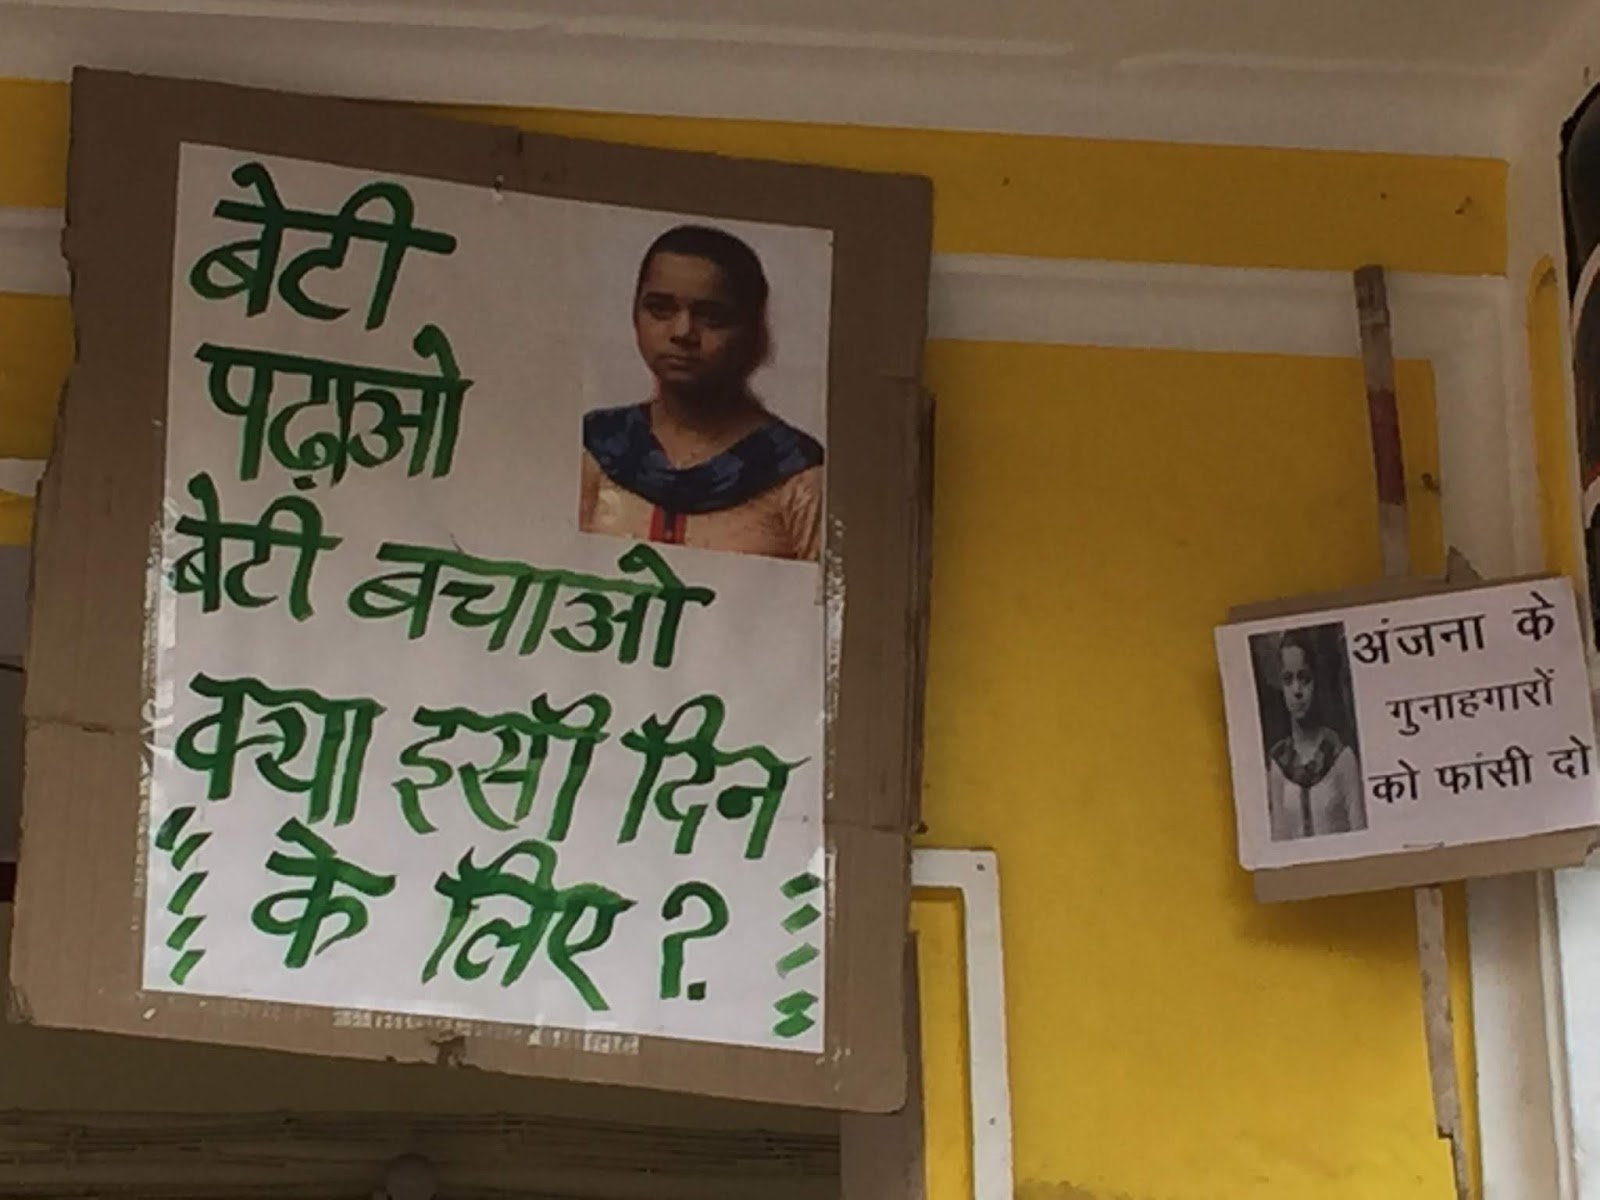 बेटी
पढ़ाओ
बेटी बचाओ
क्या इसी दिन
के लिए?
अंजना के
गुनाहगारों
को फांसी दो